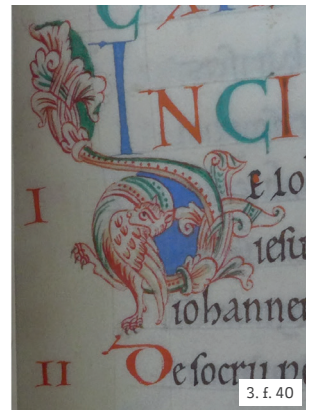 INCI
I DE IO
iesu
iohanne
II De socru
3. f. 40